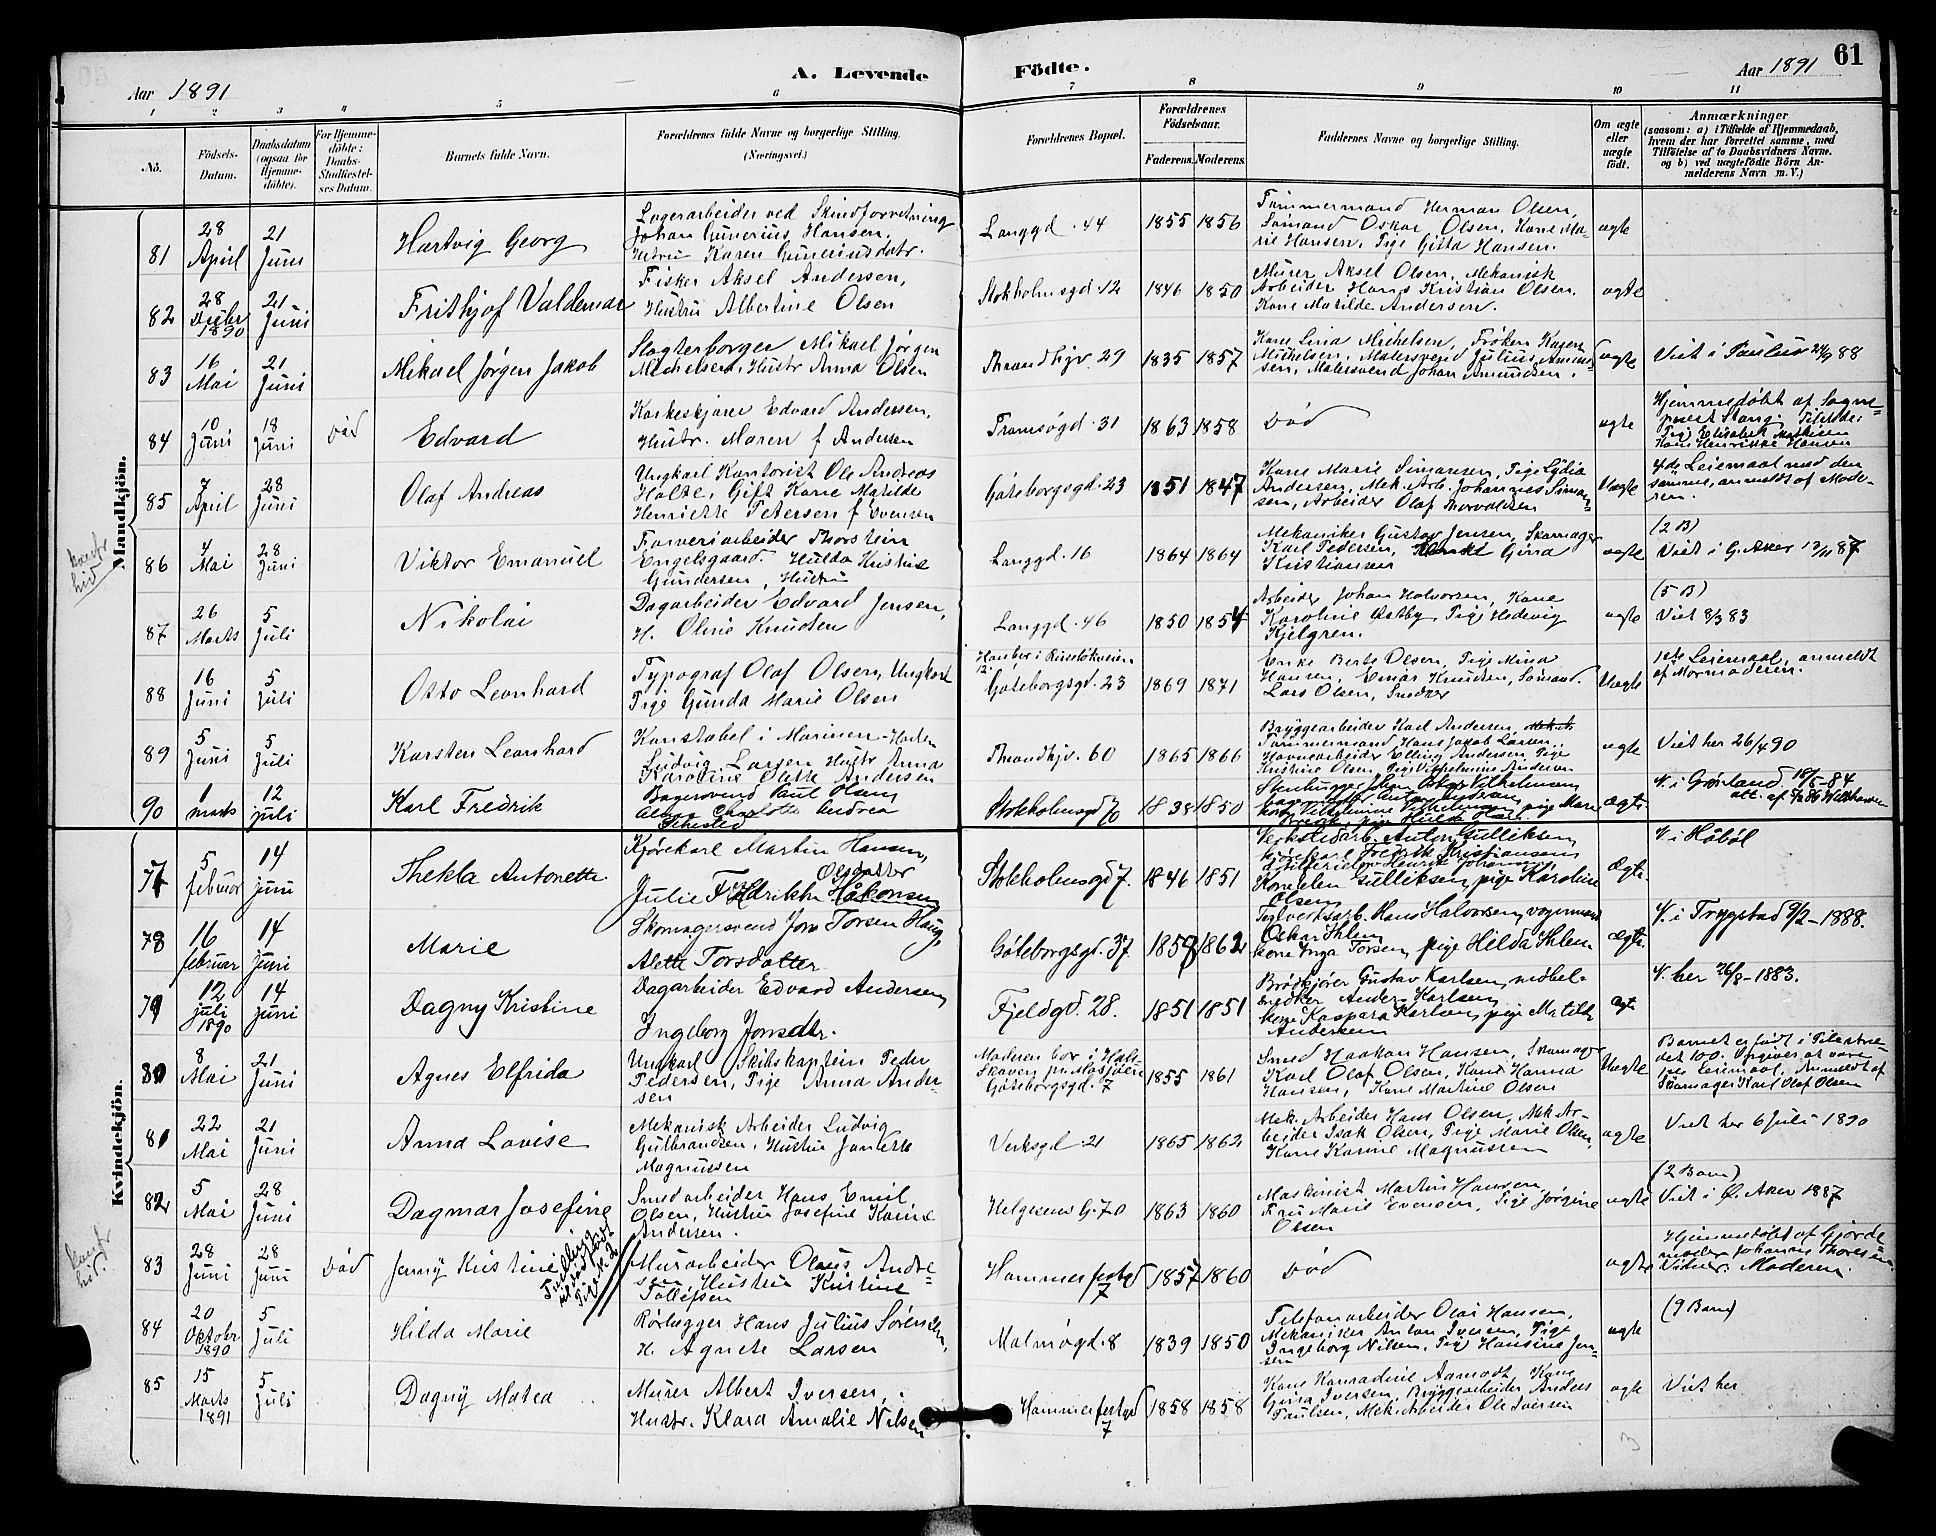 Aar 1891
A. Levende
Födte.
Aar 1891
61
1 2 3 4 5 6 7 8 9 10 11
No.
Födsels-
Datum.
Daabsdatum
(ogsaa for
Hjemme-
döbte).
For Hjemme-
döbte:
Daabs-
Stadfæstel-
ses Datum.
Barnets fulde Navn.
Forældrenes fulde Navne og borgerlige Stilling.
(Næringsvei.)
Forældrenes Bopæl.
Forældrenes
Födselsaar.
Faderens. Moderens.
Faddernes Navne og borgerlige Stilling.
Om ægte
eller
uægte
födt.
Anmærkninger
(saasom: a) i Tilfælde af Hjemmedaab,
hvem der har forrettet samme, med
Tilföielse af to Daabsvidners Navne.
og b) ved uægtefödte Börn An-
melderens Navn m. V.)
Mandkjön.
81
28
April
21
Juni
Hartvig Georg
Lagerarbeider ved Skindforretning
Johan Gunerius Hansen,
Hustru Karen Guneriusdatr.
Langgd. 44
1855 1856
Tømmermand Herman Olsen,
Sømand Oskar Olsen, Kone Ma-
rie Hansen, Pige Gitta Hansen.
ægte
82
28
Decbr
1890
21
Juni
Frithjof Valdemar
Fisker Aksel Andersen,
Hustru Albertine Olsen
Stokholmsgd. 12
1846 1850
Murer Aksel Olsen, Mekanisk
Arbeider Hans Kristian Olsen,
Kone Matilde Andersen.
ægte
83
16
Mai
21
Juni
Mikael Jørgen Jakob
Slagterborger Mikael Jørgen
Michelsen, Hustr. Anna Olsen
Trondhjv. 29
1835 1857
Kone Lina Michelsen, Frøken Kagen
Michelsen, Malersvend Julius Amund-
sen, Malersvend Johan Amundsen.
ægte
Viet i Paulus 24/9 88
84
10
Juni
18
Juni
Død
Edvard
Korkeskjærer Edvard Andersen,
Hustr. Maren f Andersen
Tromsøgd. 31
1863 1858
Død
ægte
Hjemmedøbt af Sogne-
præst Stang. Tilstede:
Pige Elisabeth Mathisen
Kone Henrikke Hansen
85
7
April
28
Juni
Olaf Andreas
Ungkarl Kontorist Ole Andreas
Holte, Gift Kone Matilde
Henriette Petersen f Svensen
Gøteborgsgd. 23
1851 1847
Kone Marie Simonsen, Pige Lydia
Andersen, Mek. Arb. Johannes Simon-
sen, Arbeider Olaf Thorvaldsen
Uægte
4de Leiemaal med den
samme, anmeldt af Mode-
ren.
86
4
Mai
28
Juni
Viktor Emanuel
Farveriarbeider Thorstein
Engelsgaard. Hulda Kristine
Gundersen, Hustru
Langgd. 16
1864 1864
Mekaniker Gustav Jensen, Skomager
Karl Pedersen, Gina
Kristiansen
ægte
(2 B)
Viet i G. Aker 13/11 87
87
26
Marts
5
Juli
Nikolai
Dagarbeider Edvard Jensen,
H. Oline Knudsen
Langgd. 46
1850 1854
Arbeider Johan Halvorsen, Kone
Karoline Østby, Pige Hedevig
Kjelgren.
ægte
(5 B)
Viet 8/3 83
88
16
Juni
5
Juli
Otto Leonhard
Typograf Olaf Olsen, Ungkarl
Pige Gunda Marie Olsen
Han bor i Ruseløkveien
12.
Gøteborgsgd. 23
1869 1871
Enke Berte Olsen, Pige Mina
Hansen, Einar Knudsen, Sømand.
Lars Olsen, Snedker
Uægte
1ste Leiemaal, anmeldt
af Mormoderen.
89
5
Juni
5
Juli
Karsten Leonhard
Konstabel i Marinen-Horten
Ludvig Larsen Hustr Anna
Karoline Olette Andersen
Trondhjv. 60
1865 1866
Bryggearbeider Karl Andersen,
Tømmermand Hans Jakob Larsen,
Havnearbeider Elling Andersen, Pige
Kristine Olsen, Pige Vilhelmine Andersen
ægte
Viet her 26/4 90
90
1
marts
12
juli
Karl Fredrik
Bagersvend Paul Hans
Charlotte Andrea
Sehested
Stokholmsgd 70
1838 1850
Vilhelmsen
Vilhelmsen, pige Marie
ægte
V. i Grønland 18/5-84
Kvindekjön.
77
5
februar
14
juni
Thekla Antonette
Kjørekarl Martin Hansen,
Olsdatter
Julie Fredrikke Håkonsen
Stokholmsgd 7.
1846 1851
Verkstedarb. Anton Gulliksen,
kjørekarl Fredrik Kristiansen,
Kone Elen Gulliksen, pige Karoline
Olsen
Ægte.
V. i Håbøl
78
16
februar
14
Juni
Marie
Skomagersvend Jon Torsen Haug,
Alette Torsdatter
Gøteborgsgd. 37.
1859 1862
Teglverksarb. Hans Halvorsen, vognmand
Oskar Ihlen
kone Inga Torsen, pige Hilda Ihlen
Ægte.
V. i Trygstad 9/2-1888.
79
12
juli
1890
14
juni
Dagny Kristine
Dagarbeider Edvard Andersen,
Ingeborg Jonsdtr.
Fjeldgd. 28.
1851 1851
Brødkjører Gustav Karlsen, møbel-
snedker Anders Karlsen,
kone Kaspara Karlsen, pige Matilde
Andersen
Ægt.
V. her 26/8-1883.
80
8
Mai
21
Juni
Agnes Elfrida
Ungkarl Skibskaptein Peder
Pedersen, Pige Anna Ander-
sen
Moderen bor i Hals-
Skoven pr. Mosjøen
Gøteborgsgd. 7
1855 1861
Smed Haakon Hansen, Skomager
Karl Olaf Olsen, Kone Hanna
Hansen, Kone Martine Olsen
Uægte
Barnet er født i Pilestræ-
det 100. Opgives at være
1ste Leiemaal, Anmeldt af
Skomager Karl Olaf Olsen
81
22
Mai
21
Juni
Anna Lovise
Mekanisk Arbeider Ludvig
Gulbrandsen, Hustru Janette
Magnussen
Verksgd. 21
1865 1862
Mek. Arbeider Hans Olsen, Mek Ar-
beider Isak Olsen, Pige Marie Olsen,
Kone Karine Magnussen
ægte
Viet her 6 Juli 1890
82
5
Mai
28
Juni
Dagmar Josefine
Smedarbeider Hans Emil
Olsen, Hustru Josefine Karine
Andersen.
Helgesens G. 70
1863 1860
Maskinist Martin Hansen,
Fru Marie Evensen, Pige Jørgine
Olsen
ægte
(2 Barn)
Viet i Ø. Aker 1887
83
28
Juni
28
Juni
Død
Jenny Kristine
Murarbeider Olaus Andre-
sen, Hustru Kristine
Tollefsen
Hammerfestgd
7
1857 1860
Død
ægte
Hjemmedøbt af Gjorde
moder Johanne Thoresen
Vidner: Moderen.
84
20
Oktober
1890
5
Juli
Hilda Marie
Rørlægger Hans Julius Sørensen,
H. Agnete Larsen
Malmøgd. 8
1839 1850
Telefonarbeider Olai Hansen,
Mekaniker Anton Iversen, Pige
Ingeborg Nilsen, Pige Hansine Jen-
sen
ægte
(9 Barn)
85
15
Marts
1891
5
Juli
Dagny Matea
Murer Albert Iversen,
Hustr. Klara Amalie Nilsen
Hammerfestgd
7
1858 1858
Kone Konradine Aamodt, Kone
Gina Iversen, Bryggearbeider Anders
Paulsen, Mek. Arbeider Ole Iversen
ægte
Viet her